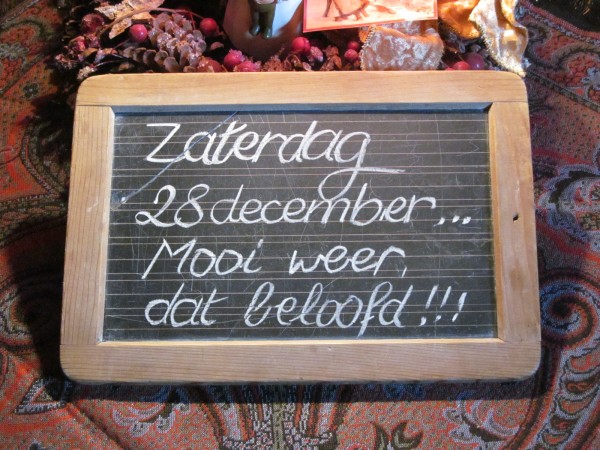 Zaterdag
28 december...
Mooi weer,
dat beloofd!!!